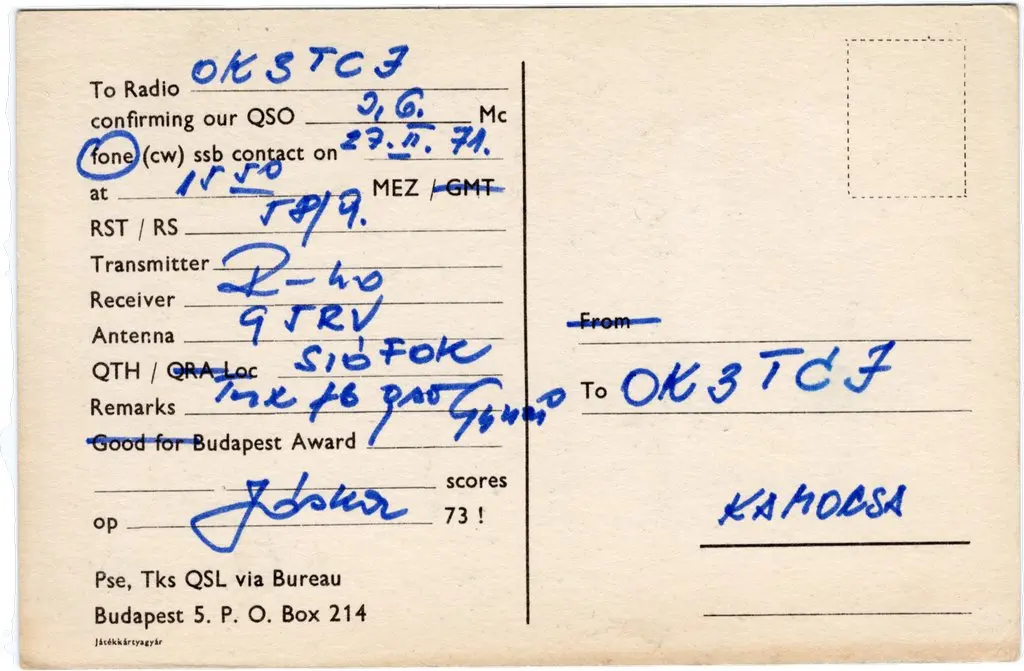 To Radio OK3TCJ
confirming our QSO 3,6. Mc
fone (cw) ssb contact on 27. II. 71.
at 15 50 MEZ / GMT
RST / RS 58/9.
Transmitter
Receiver R-40
Antenna G5RV
QTH / QRA Loc SIÓFOK
Remarks Tnx fb qso
Good for Budapest Award
scores
op Jóska 73 !
Pse, Tks QSL via Bureau
Budapest 5. P. O. Box 214
Játékkártyagyár
From
To OK3TCJ
KAMOCSA